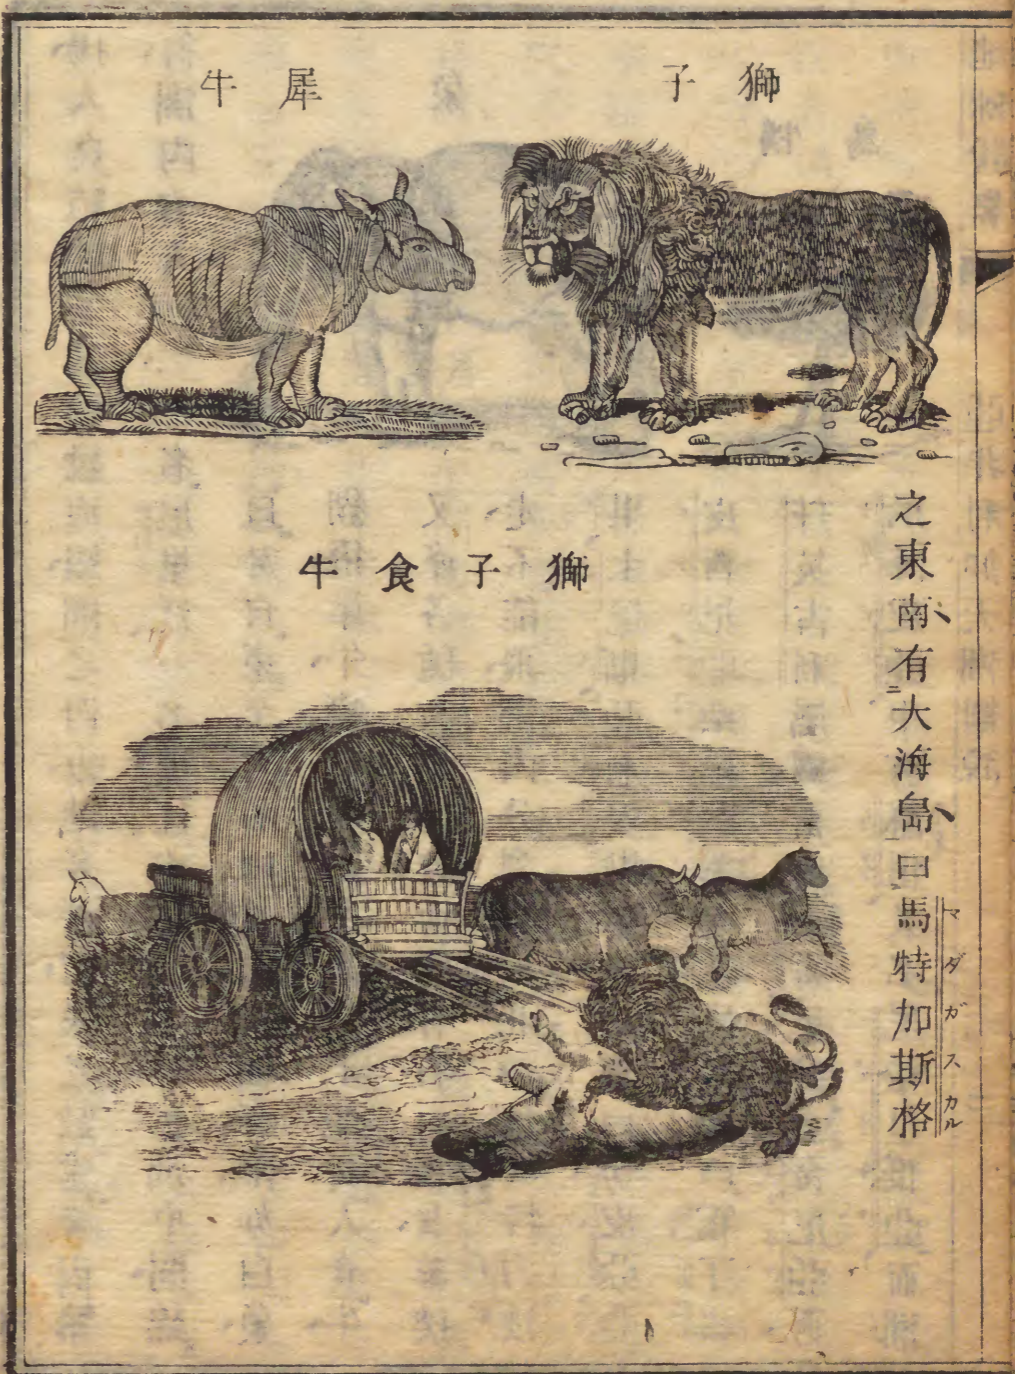 獅子
犀牛
之東南有大海島曰馬特加斯格
マダガスカル
獅子食牛